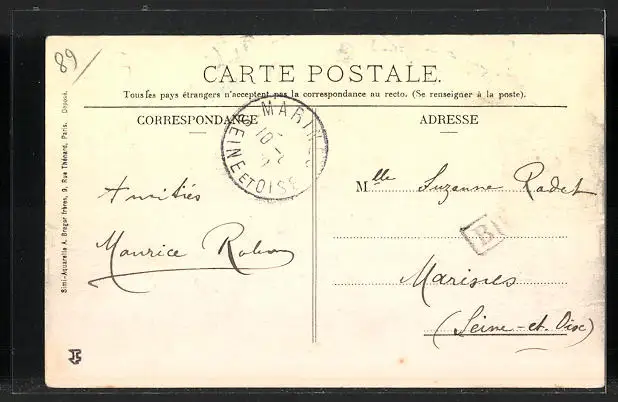 89
CARTE POSTALE.
Tous les pays étrangers n'acceptent pas la correspondance au recto. (Se renseigner à la poste).
CORRESPONDANCE
ADRESSE
MARINES
10
SEINE ET OISE
Amitiés
Maurice
Mlle Suzanne Radet
B
Marines
(Seine-et-Oise)
Simi-Aquarelle A. Breger frères, 9, Rue Thénard, Paris. Déposé.